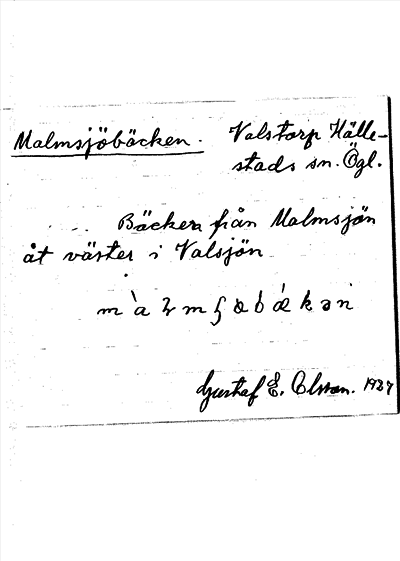 Malmsjöbäcken. Valstorp Hälle-
stads sn. Ögl.
Bäcken från Malmsjön
åt väster i Valsjön
Gustaf E. Olsson. 1934